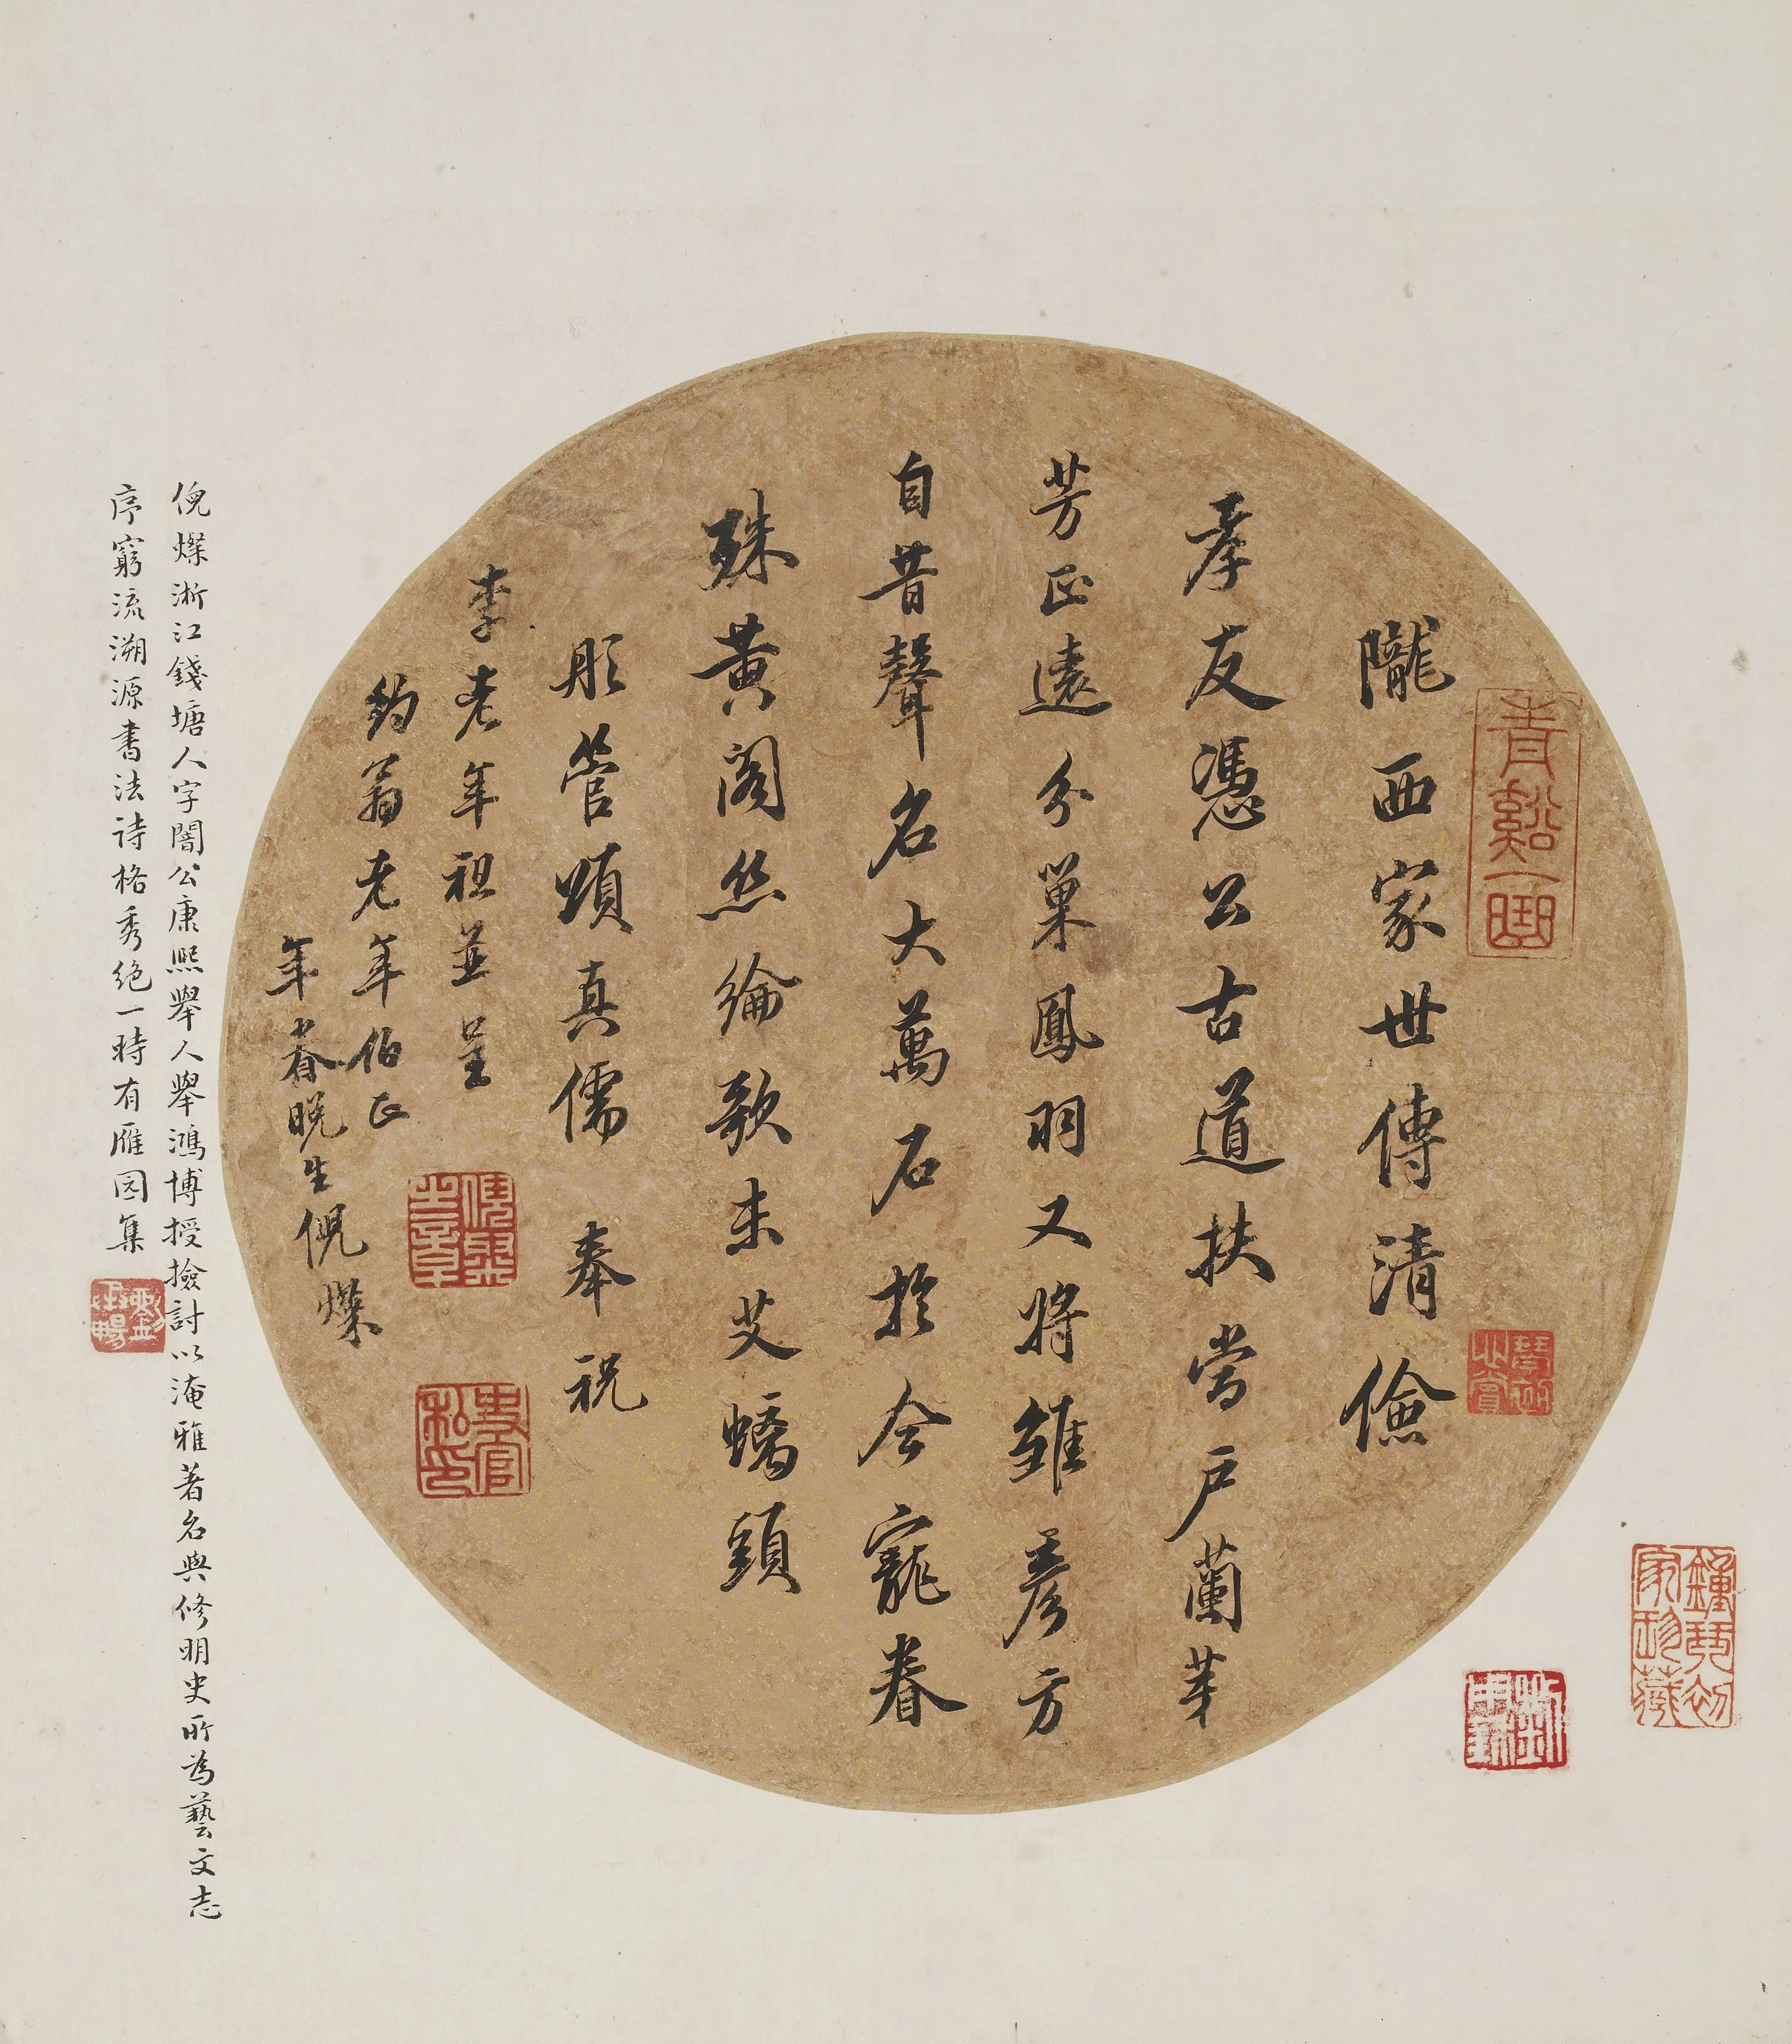 隴西家世傳清儉
孝友憑公古道扶當戶蘭芽
芳正遠分巢鳳羽又將雛彥方
自昔聲名大萬石於今寵眷
殊黃閣絲綸歌未艾螭頭
彤管頌真儒 奉祝
李老年祖並呈
約翁老年伯正
年眷晚生倪燦
倪燦浙江錢塘人字闇公康熙舉人舉鴻博授撿討以淹雅著名與修明史所為藝文志
序窮流溯源書法詩格秀絕一時有雁園集
青谿一曲
倪燦之印
史官私印